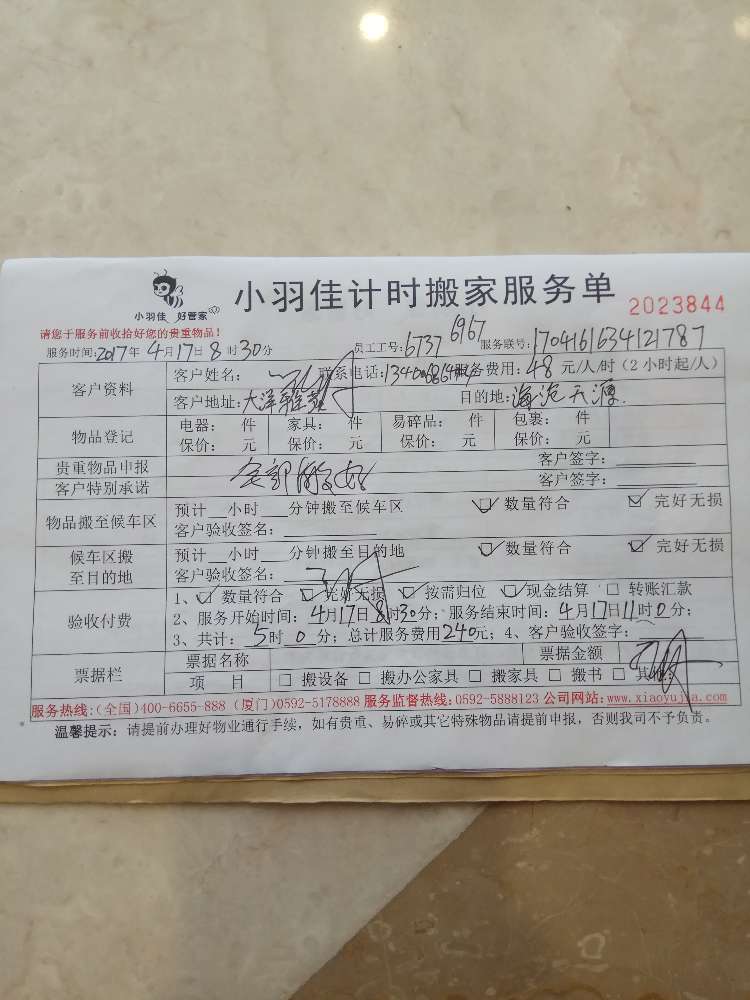 小羽佳 好管家
小羽佳计时搬家服务单
2023844
请您于服务前收拾好您的贵重物品！
服务时间:2017年4月17日8时30分 员工工号:6737 6967 服务联号:1704161634121787
客户资料
客户姓名: 联系电话: 服务费用:48元/人/时(2小时起/人)
客户地址: 目的地:海沧天源
物品登记
电器: 件 家具: 件 易碎品: 件 包裹: 件
保价: 元 保价: 元 保价: 元 保价: 元
贵重物品申报 客户签字:
客户特别承诺 客户签字:
物品搬至候车区
预计 小时 分钟搬至候车区 数量符合 完好无损
客户验收签名:
候车区搬至目的地
预计 小时 分钟搬至目的地 数量符合 完好无损
客户验收签名:
验收付费
1、 数量符合 完好无损 按需归位 现金结算 转账汇款
2、服务开始时间: 4月17日8时30分; 服务结束时间: 4月17日11时0分;
3、共计: 5时0分; 总计服务费用240元; 4、客户验收签字:
票据栏
票据名称 票据金额
项 目 搬设备 搬办公家具 搬家具 搬书 其他:
服务热线:(全国)400-6655-888 (厦门)0592-5178888 服务监督热线:0592-5888123 公司网站:www.xiaoyujia.com
温馨提示: 请提前办理好物业通行手续, 如有贵重、易碎或其它特殊物品请提前申报, 否则我司不予负责。